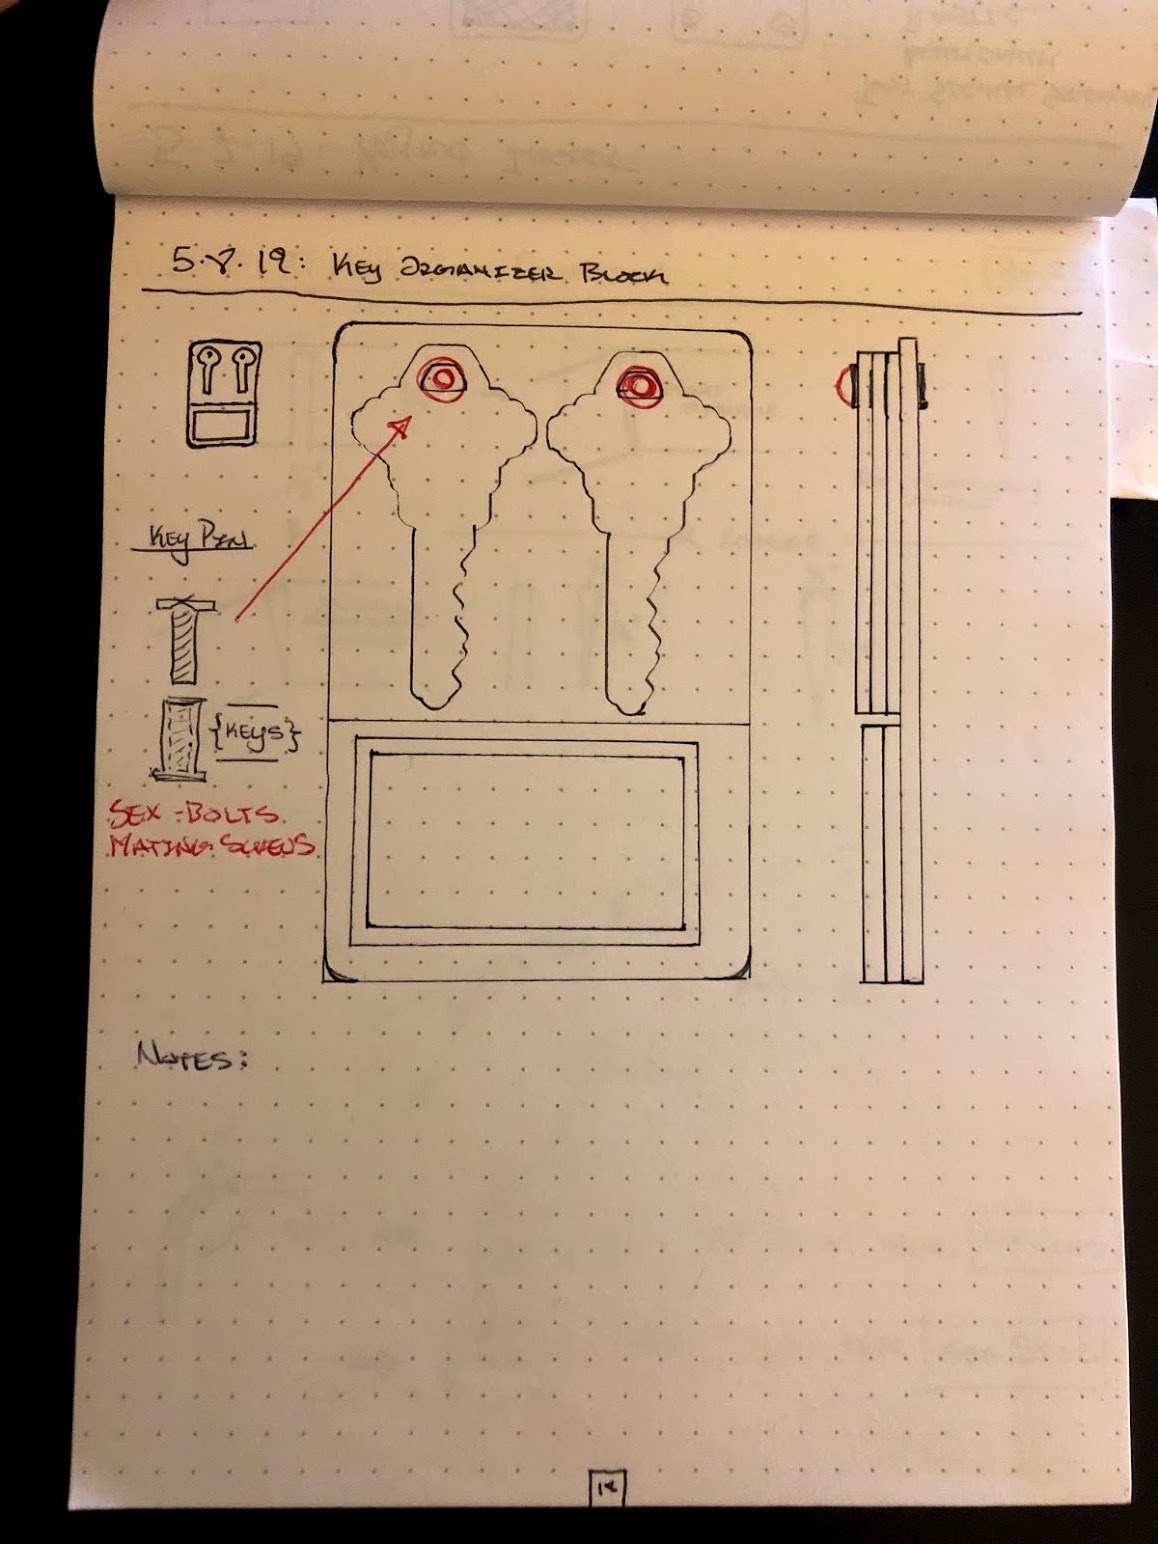 5.8.19: KEY ORGANIZER BLOCK
KEY PIN
{KEYS}
SEX-BOLTS
MATING SCREWS
NOTES: